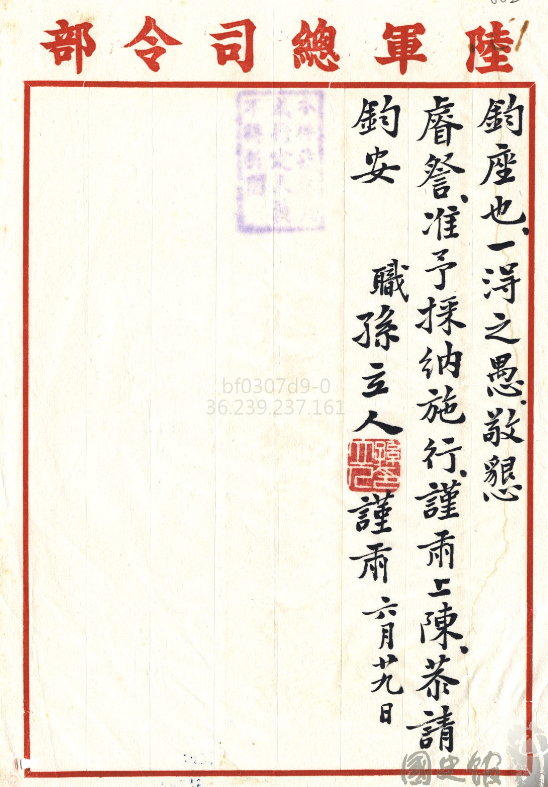 陸軍總司令部
鈞座也、一淂之愚、敬懇
睿詧、准予採納施行、謹肅上陳、恭請
鈞安
職孫立人謹肅 六月廿九日
bf0307d9-0
36.239.237.161
國史館